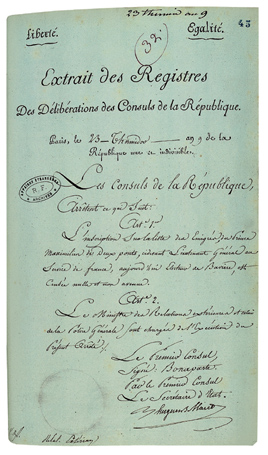 23 thermidor an 9
43
Liberté.
Egalité.
32.
Extrait des Registres
Des Délibérations des Consuls de la République.
Paris, le 23 Thermidor an 9 de la
République une et indivisible.
AFFAIRES ÉTRANGÈRES
R.F.
ARCHIVES
Les Consuls de la République,
Arrêtent ce qui Suit:
Art. 1er
L'inscription Sur la liste des Emigrés du Prince
Maximilien de Deux ponts, cidevant Lieutenant Général au
Service de france, aujourd'hui Electeur de Baviere, est
nulle et non avenue.
Art. 2.
Le Ministre des Relations Exterieures et celui
de la Police Générale, Sont chargés de l'Execution du
Présent Arrêté.
Le Premier Consul
Signé: Bonaparte
Par le Premier Consul
Le Secrétaire d'Etat
Hugues B. Maret